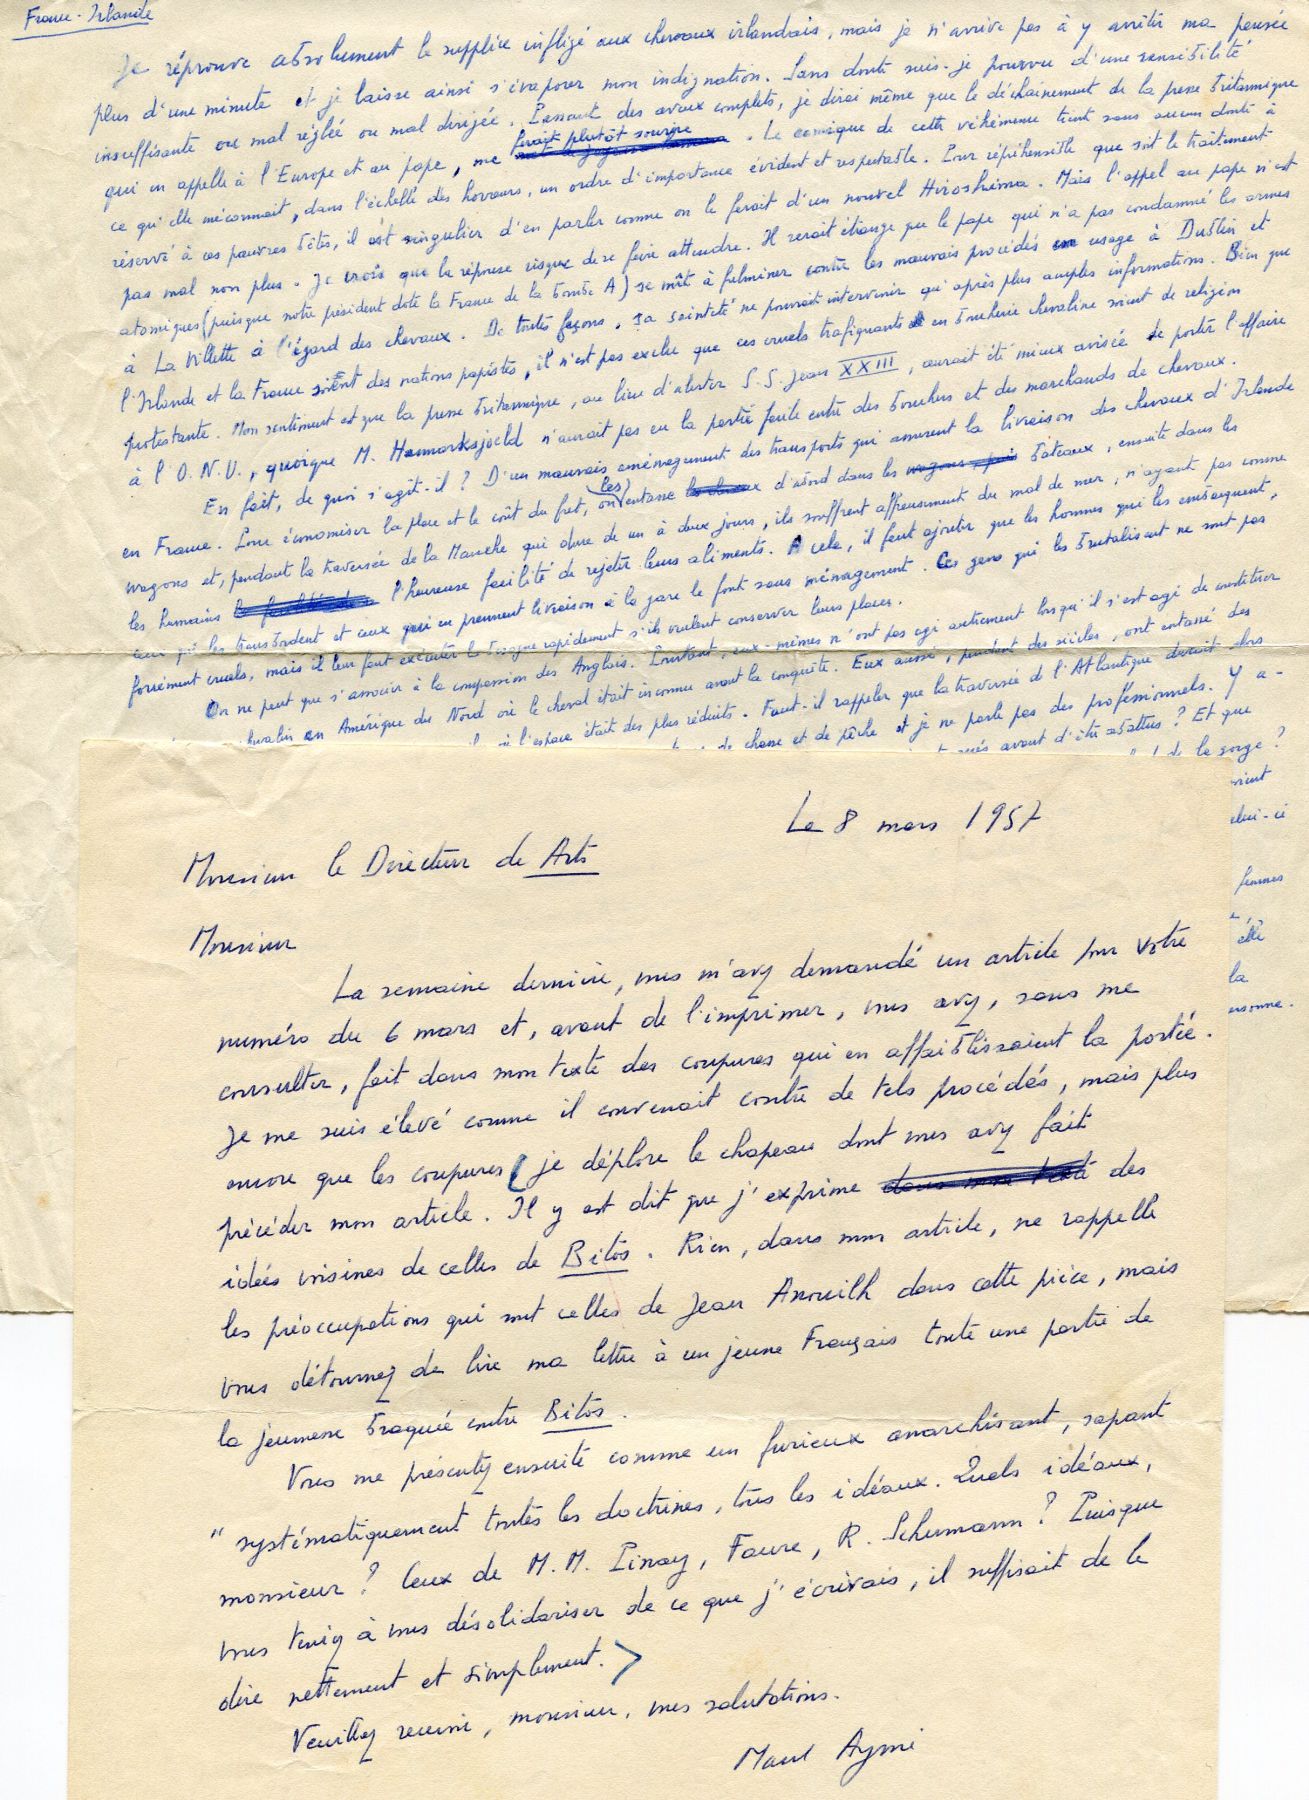 France-Irlande
Je réprouve absolument le supplice infligé aux chevaux irlandais, mais je n'arrive pas à y arrêter ma pensée
plus d'une minute et je laisse ainsi s'évaporer mon indignation. Sans doute suis-je pourvu d'une sensibilité
insuffisante ou mal réglée ou mal dirigée. Passant des aveux complets, je dirai même que le déchaînement de la presse britannique
qui en appelle à l'Europe et au pape, me ferait plutôt sourire. Le comique de cette véhémence tient sans aucun doute à
ce qu'elle méconnaît, dans l'échelle des horreurs, un ordre d'importance évident et respectable. Pour répréhensible que soit le traitement
réservé à ces pauvres bêtes, il est singulier d'en parler comme on le ferait d'un nouvel Hiroshima. Mais l'appel au pape n'est
pas mal non plus. Je crois que la réponse risque de se faire attendre. Il serait étrange que le pape qui n'a pas condamné les armes
atomiques (puisque notre président dote la France de la bombe A) se mît à fulminer contre les mauvais procédés en usage à Dublin et
à La Villette à l'égard des chevaux. De toutes façons, sa sainteté ne pourrait intervenir qu'après plus amples informations. Bien que
l'Irlande et la France soient des nations papistes, il n'est pas exclu que ces cruels trafiquants en boucherie chevaline soient de religion
protestante. Mon sentiment est que la presse britannique, au lieu d'alerter S.S. Jean XXIII, aurait été mieux avisée de porter l'affaire
à l'O.N.U., quoique M. Hammarksjoeld n'aurait pas eu la partie facile entre des bouchers et des marchands de chevaux.
En fait, de quoi s'agit-il ? D'un mauvais aménagement des transports qui assurent la livraison des chevaux d'Irlande
en France. Pour économiser la place et le coût du fret, on les entasse d'abord dans les bateaux, ensuite dans les
wagons et, pendant la traversée de la Manche qui dure de un à deux jours, ils souffrent affreusement du mal de mer, n'ayant pas comme
les humains l'heureuse facilité de rejeter leurs aliments. A cela, il faut ajouter que les hommes qui les embarquent,
ceux qui les transbordent et ceux qui en prennent livraison à la gare le font sans ménagement. Ces gens qui les brutalisent ne sont pas
forcément cruels, mais il leur faut exécuter la besogne rapidement s'ils veulent conserver leurs places.
On ne peut que s'associer à la compassion des Anglais. Pourtant, eux-mêmes n'ont pas agi autrement lorsqu'il s'est agi de constituer
chevalin en Amérique du Nord où le cheval était inconnu avant la conquête. Eux aussi, pendant des siècles, ont entassé des
où l'espace était des plus réduits. Faut-il rappeler que la traversée de l'Atlantique durait alors
de chasse et de pêche et je ne parle pas des professionnels. Y a-
avant d'être abattus ? Et que
de la gorge ?
celui-ci
femmes
elle
la
personne.
Le 8 mars 1957
Monsieur le Directeur de Arts
Monsieur
La semaine dernière, vous m'avez demandé un article pour votre
numéro du 6 mars et, avant de l'imprimer, vous avez, sans me
consulter, fait dans mon texte des coupures qui en affaiblissaient la portée.
Je me suis élevé comme il convenait contre de tels procédés, mais plus
encore que les coupures je déplore le chapeau dont vous avez fait
précéder mon article. Il y est dit que j'exprime des
idées voisines de celles de Bitos. Rien, dans mon article, ne rappelle
les préoccupations qui sont celles de Jean Anouilh dans cette pièce, mais
vous détournez de lire ma lettre à un jeune Français toute une partie de
la jeunesse braquée contre Bitos.
Vous me présentez ensuite comme un furieux anarchisant, sapant
"systématiquement toutes les doctrines, tous les idéaux. Quels idéaux,
monsieur ? Ceux de M.M. Pinay, Faure, R. Schumann ? Puisque
vous teniez à vous désolidariser de ce que j'écrivais, il suffisait de le
dire nettement et simplement.
Veuillez recevoir, monsieur, mes salutations.
Marcel Aymé